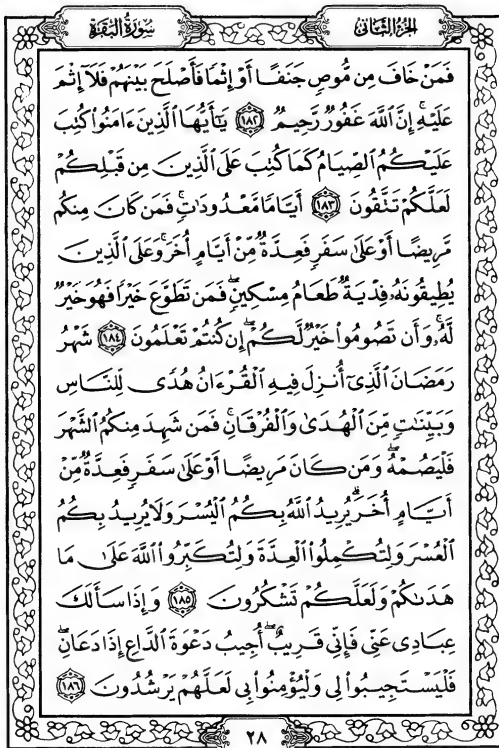 سُورَةُ البَقَرَةِ
الجُزْءُ الثَّانِي
فَمَنْ خَافَ مِن مُّوصٍ جَنَفًا أَوْ إِثْمًا فَأَصْلَحَ بَيْنَهُمْ فَلَآ إِثْمَ
عَلَيْهِۚ إِنَّ ٱللَّهَ غَفُورٌ رَّحِيمٌ ١٨٢ يَٰٓأَيُّهَا ٱلَّذِينَ ءَامَنُوا۟ كُتِبَ
عَلَيْكُمُ ٱلصِّيَامُ كَمَا كُتِبَ عَلَى ٱلَّذِينَ مِن قَبْلِكُمْ
لَعَلَّكُمْ تَتَّقُونَ ١٨٣ أَيَّامًا مَّعْدُودَٰتٍۚ فَمَن كَانَ مِنكُم
مَّرِيضًا أَوْ عَلَىٰ سَفَرٍ فَعِدَّةٌ مِّنْ أَيَّامٍ أُخَرَۚ وَعَلَى ٱلَّذِينَ
يُطِيقُونَهُۥ فِدْيَةٌ طَعَامُ مِسْكِينٍۖ فَمَن تَطَوَّعَ خَيْرًا فَهُوَ خَيْرٌ
لَّهُۥۚ وَأَن تَصُومُوا۟ خَيْرٌ لَّكُمْۖ إِن كُنتُمْ تَعْلَمُونَ ١٨٤ شَهْرُ
رَمَضَانَ ٱلَّذِىٓ أُنزِلَ فِيهِ ٱلْقُرْءَانُ هُدًى لِّلنَّاسِ
وَبَيِّنَٰتٍ مِّنَ ٱلْهُدَىٰ وَٱلْفُرْقَانِۚ فَمَن شَهِدَ مِنكُمُ ٱلشَّهْرَ
فَلْيَصُمْهُۖ وَمَن كَانَ مَرِيضًا أَوْ عَلَىٰ سَفَرٍ فَعِدَّةٌ مِّنْ
أَيَّامٍ أُخَرَۗ يُرِيدُ ٱللَّهُ بِكُمُ ٱلْيُسْرَ وَلَا يُرِيدُ بِكُمُ
ٱلْعُسْرَ وَلِتُكْمِلُوا۟ ٱلْعِدَّةَ وَلِتُكَبِّرُوا۟ ٱللَّهَ عَلَىٰ مَا
هَدَىٰكُمْ وَلَعَلَّكُمْ تَشْكُرُونَ ١٨٥ وَإِذَا سَأَلَكَ
عِبَادِى عَنِّى فَإِنِّى قَرِيبٌۖ أُجِيبُ دَعْوَةَ ٱلدَّاعِ إِذَا دَعَانِۖ
فَلْيَسْتَجِيبُوا۟ لِى وَلْيُؤْمِنُوا۟ بِى لَعَلَّهُمْ يَرْشُدُونَ ١٨٦
٢٨